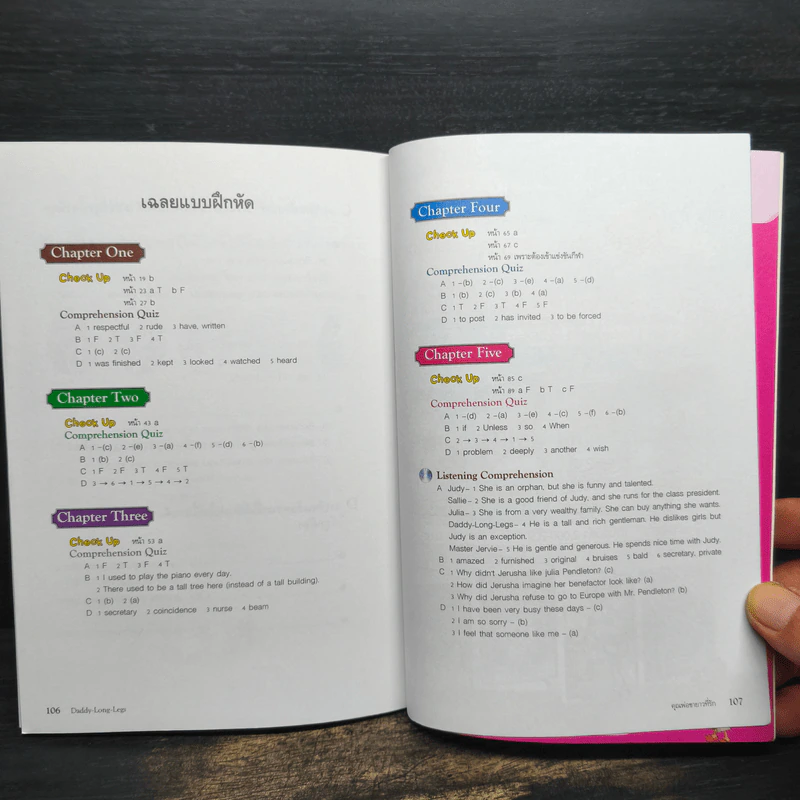 เฉลยแบบฝึกหัด
Chapter One
Check Up หน้า 19 b
หน้า 23 a T b F
หน้า 27 b
Comprehension Quiz
A 1 respectful 2 rude 3 have, written
B 1 F 2 T 3 F 4 T
C 1 (c) 2 (c)
D 1 was finished 2 kept 3 looked 4 watched 5 heard
Chapter Two
Check Up หน้า 43 a
Comprehension Quiz
A 1 –(c) 2 –(e) 3 –(a) 4 –(f) 5 –(d) 6 –(b)
B 1 (b) 2 (c)
C 1 F 2 F 3 T 4 F 5 T
D 3 → 6 → 1 → 5 → 4 → 2
Chapter Three
Check Up หน้า 53 a
Comprehension Quiz
A 1 F 2 T 3 F 4 T
B 1 I used to play the piano every day.
2 There used to be a tall tree here (instead of a tall building).
C 1 (b) 2 (a)
D 1 secretary 2 coincidence 3 nurse 4 beam
106 Daddy-Long-Legs
Chapter Four
Check Up หน้า 65 a
หน้า 67 c
หน้า 69 เพราะต้องเข้าแข่งขันกีฬา
Comprehension Quiz
A 1 –(b) 2 –(c) 3 –(e) 4 –(a) 5 –(d)
B 1 (b) 2 (c) 3 (b) 4 (a)
C 1 T 2 F 3 T 4 F 5 F
D 1 to post 2 has invited 3 to be forced
Chapter Five
Check Up หน้า 85 c
หน้า 89 a F b T c F
Comprehension Quiz
A 1 –(d) 2 –(a) 3 –(e) 4 –(c) 5 –(f) 6 –(b)
B 1 if 2 Unless 3 so 4 When
C 2 → 3 → 4 → 1 → 5
D 1 problem 2 deeply 3 another 4 wish
Listening Comprehension
A Judy– 1 She is an orphan, but she is funny and talented.
Sallie– 2 She is a good friend of Judy, and she runs for the class president.
Julia– 3 She is from a very wealthy family. She can buy anything she wants.
Daddy-Long-Legs– 4 He is a tall and rich gentleman. He dislikes girls but
Judy is an exception.
Master Jervie– 5 He is gentle and generous. He spends nice time with Judy.
B 1 amazed 2 furnished 3 original 4 bruises 5 bald 6 secretary, private
C 1 Why didn't Jerusha like Julia Pendleton? (c)
2 How did Jerusha imagine her benefactor look like? (a)
3 Why did Jerusha refuse to go to Europe with Mr. Pendleton? (b)
D 1 I have been very busy these days – (c)
2 I am so sorry – (b)
3 I feel that someone like me – (a)
คุณพ่อขายาวที่รัก 107